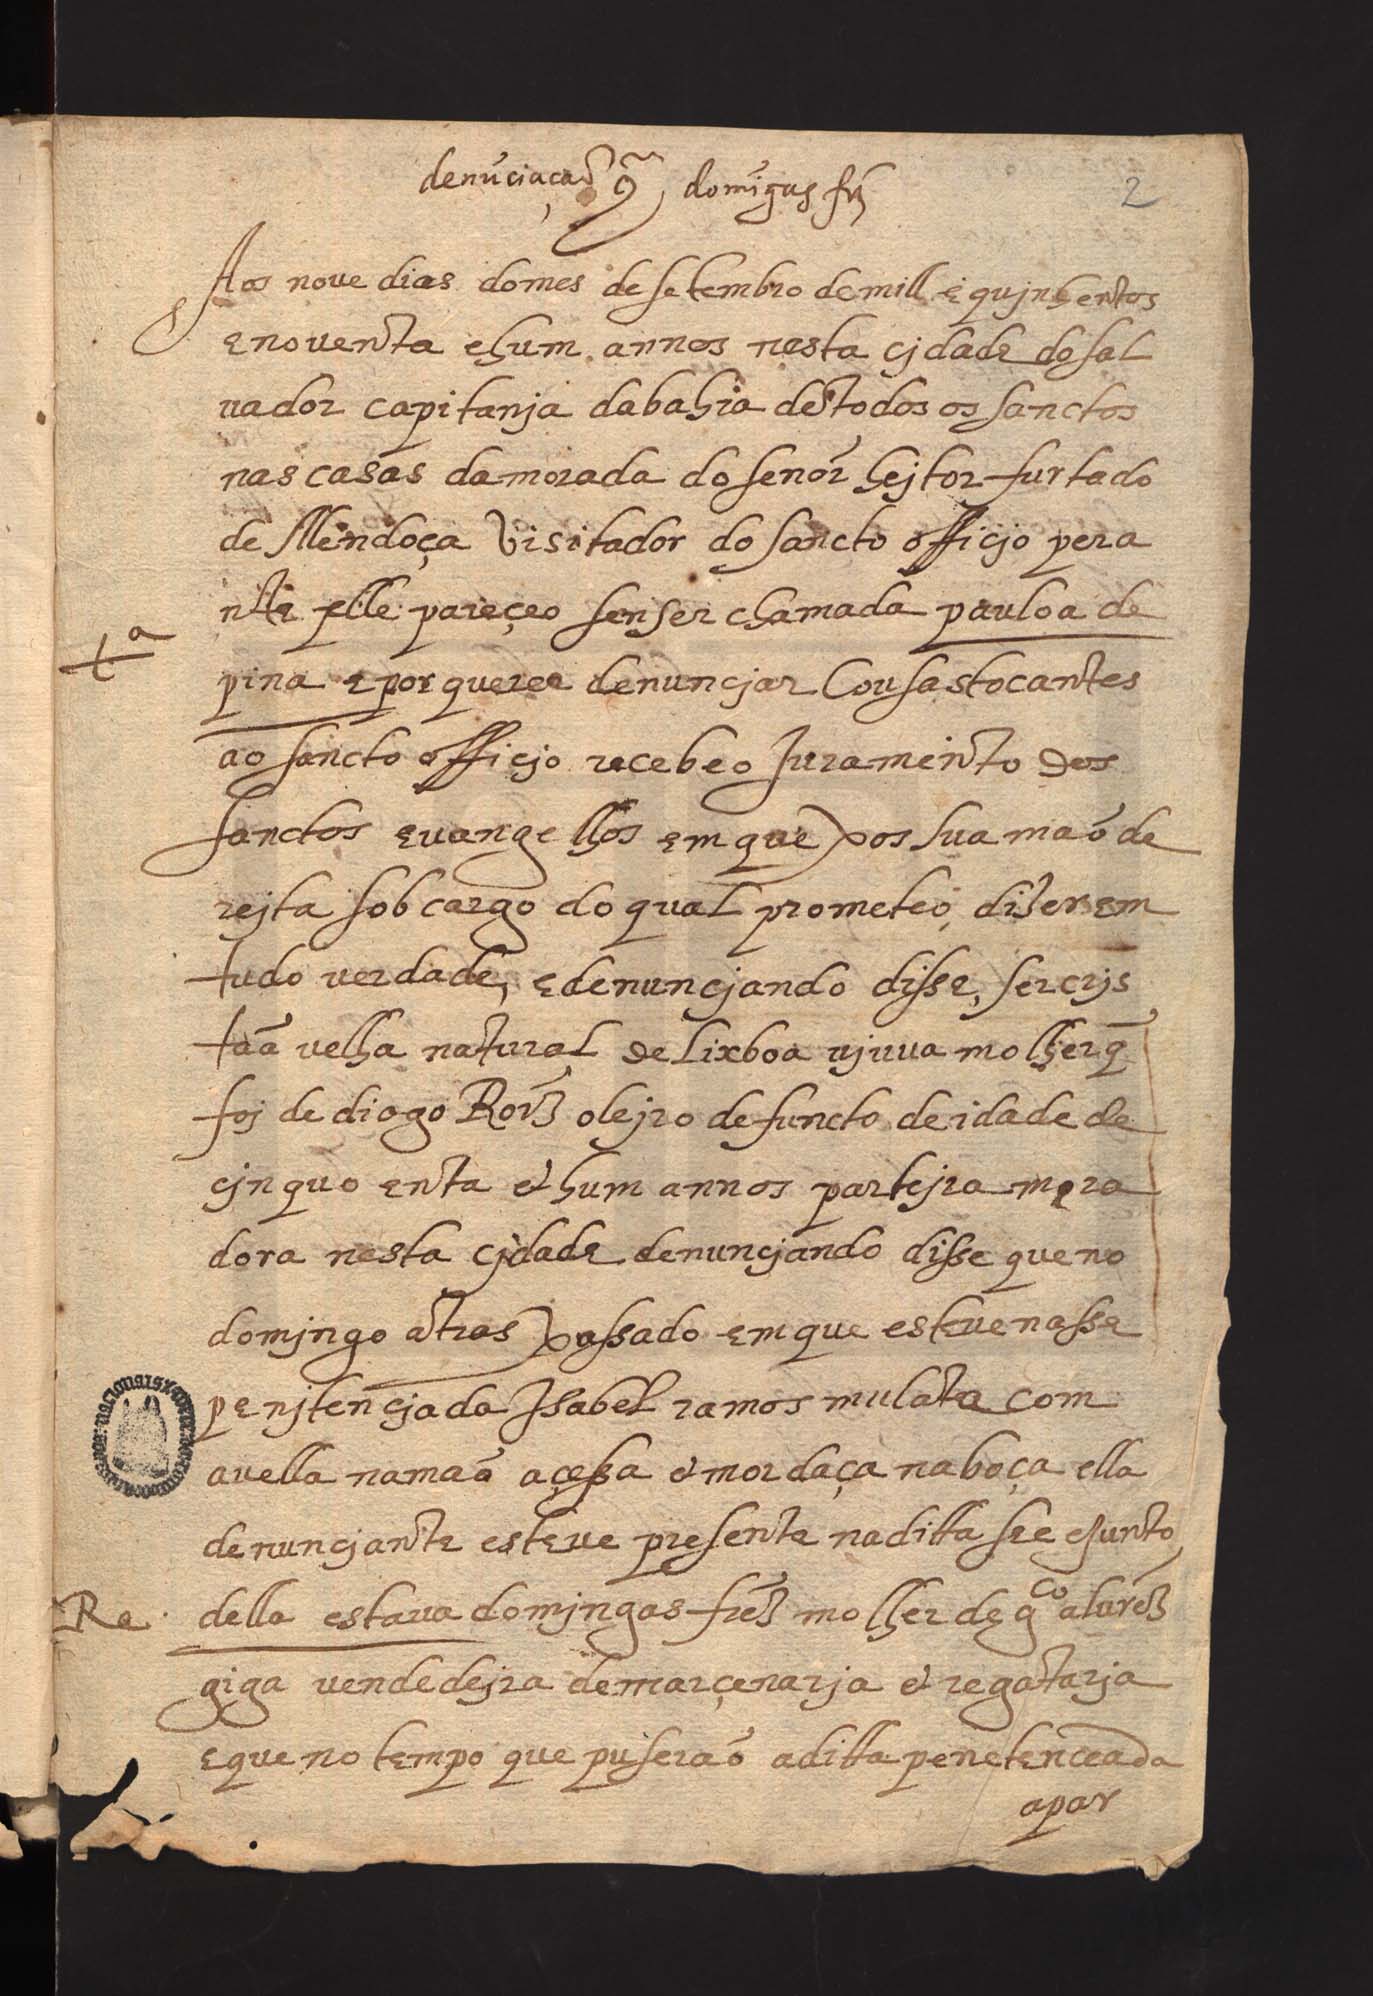 denũciaçaõ 9ᵃ domĩgas frz
2
Aos noue dias do mes de setembro de mill e qujnhentos
e nouenta e hum annos nesta cjdade do sal
uador capitanja da bahia de todos os sanctos
nas casas da morada do senõr hejtor furtado
de Mendoça Visitador do sancto officjo pera
nte elle pareçeo sen ser chamada pauloa de
tᵃ
pina e por querer denuncjar Cousas tocantes
ao sancto officjo recebeo Juramento dos
sanctos euangelhos em que pos sua maõ de
rejta sob cargo do qual prometeo dizer em
tudo verdade, e denuncjando disse, ser cris
taã velha natural de Lixboa vjuva molher q̃
foj de diogo Roĩz olejro defuncto de idade de
cjnquo enta e hum annos partejra mora
dora nesta cjdade denuncjando disse que no
domjngo atras passado em que esteve na sse
penjtencjada Isabel ramos mulata com
a vella na maõ açessa e mordaça na boça ella
denuncjante esteve presente na ditta see e Junto
Re
della estaua domjngas frẽz molher de gᶜᵒ alurẽz
giga vendedejra de marçenarja e regatarja
e que no tempo que puseraõ a ditta penetenceada
apar